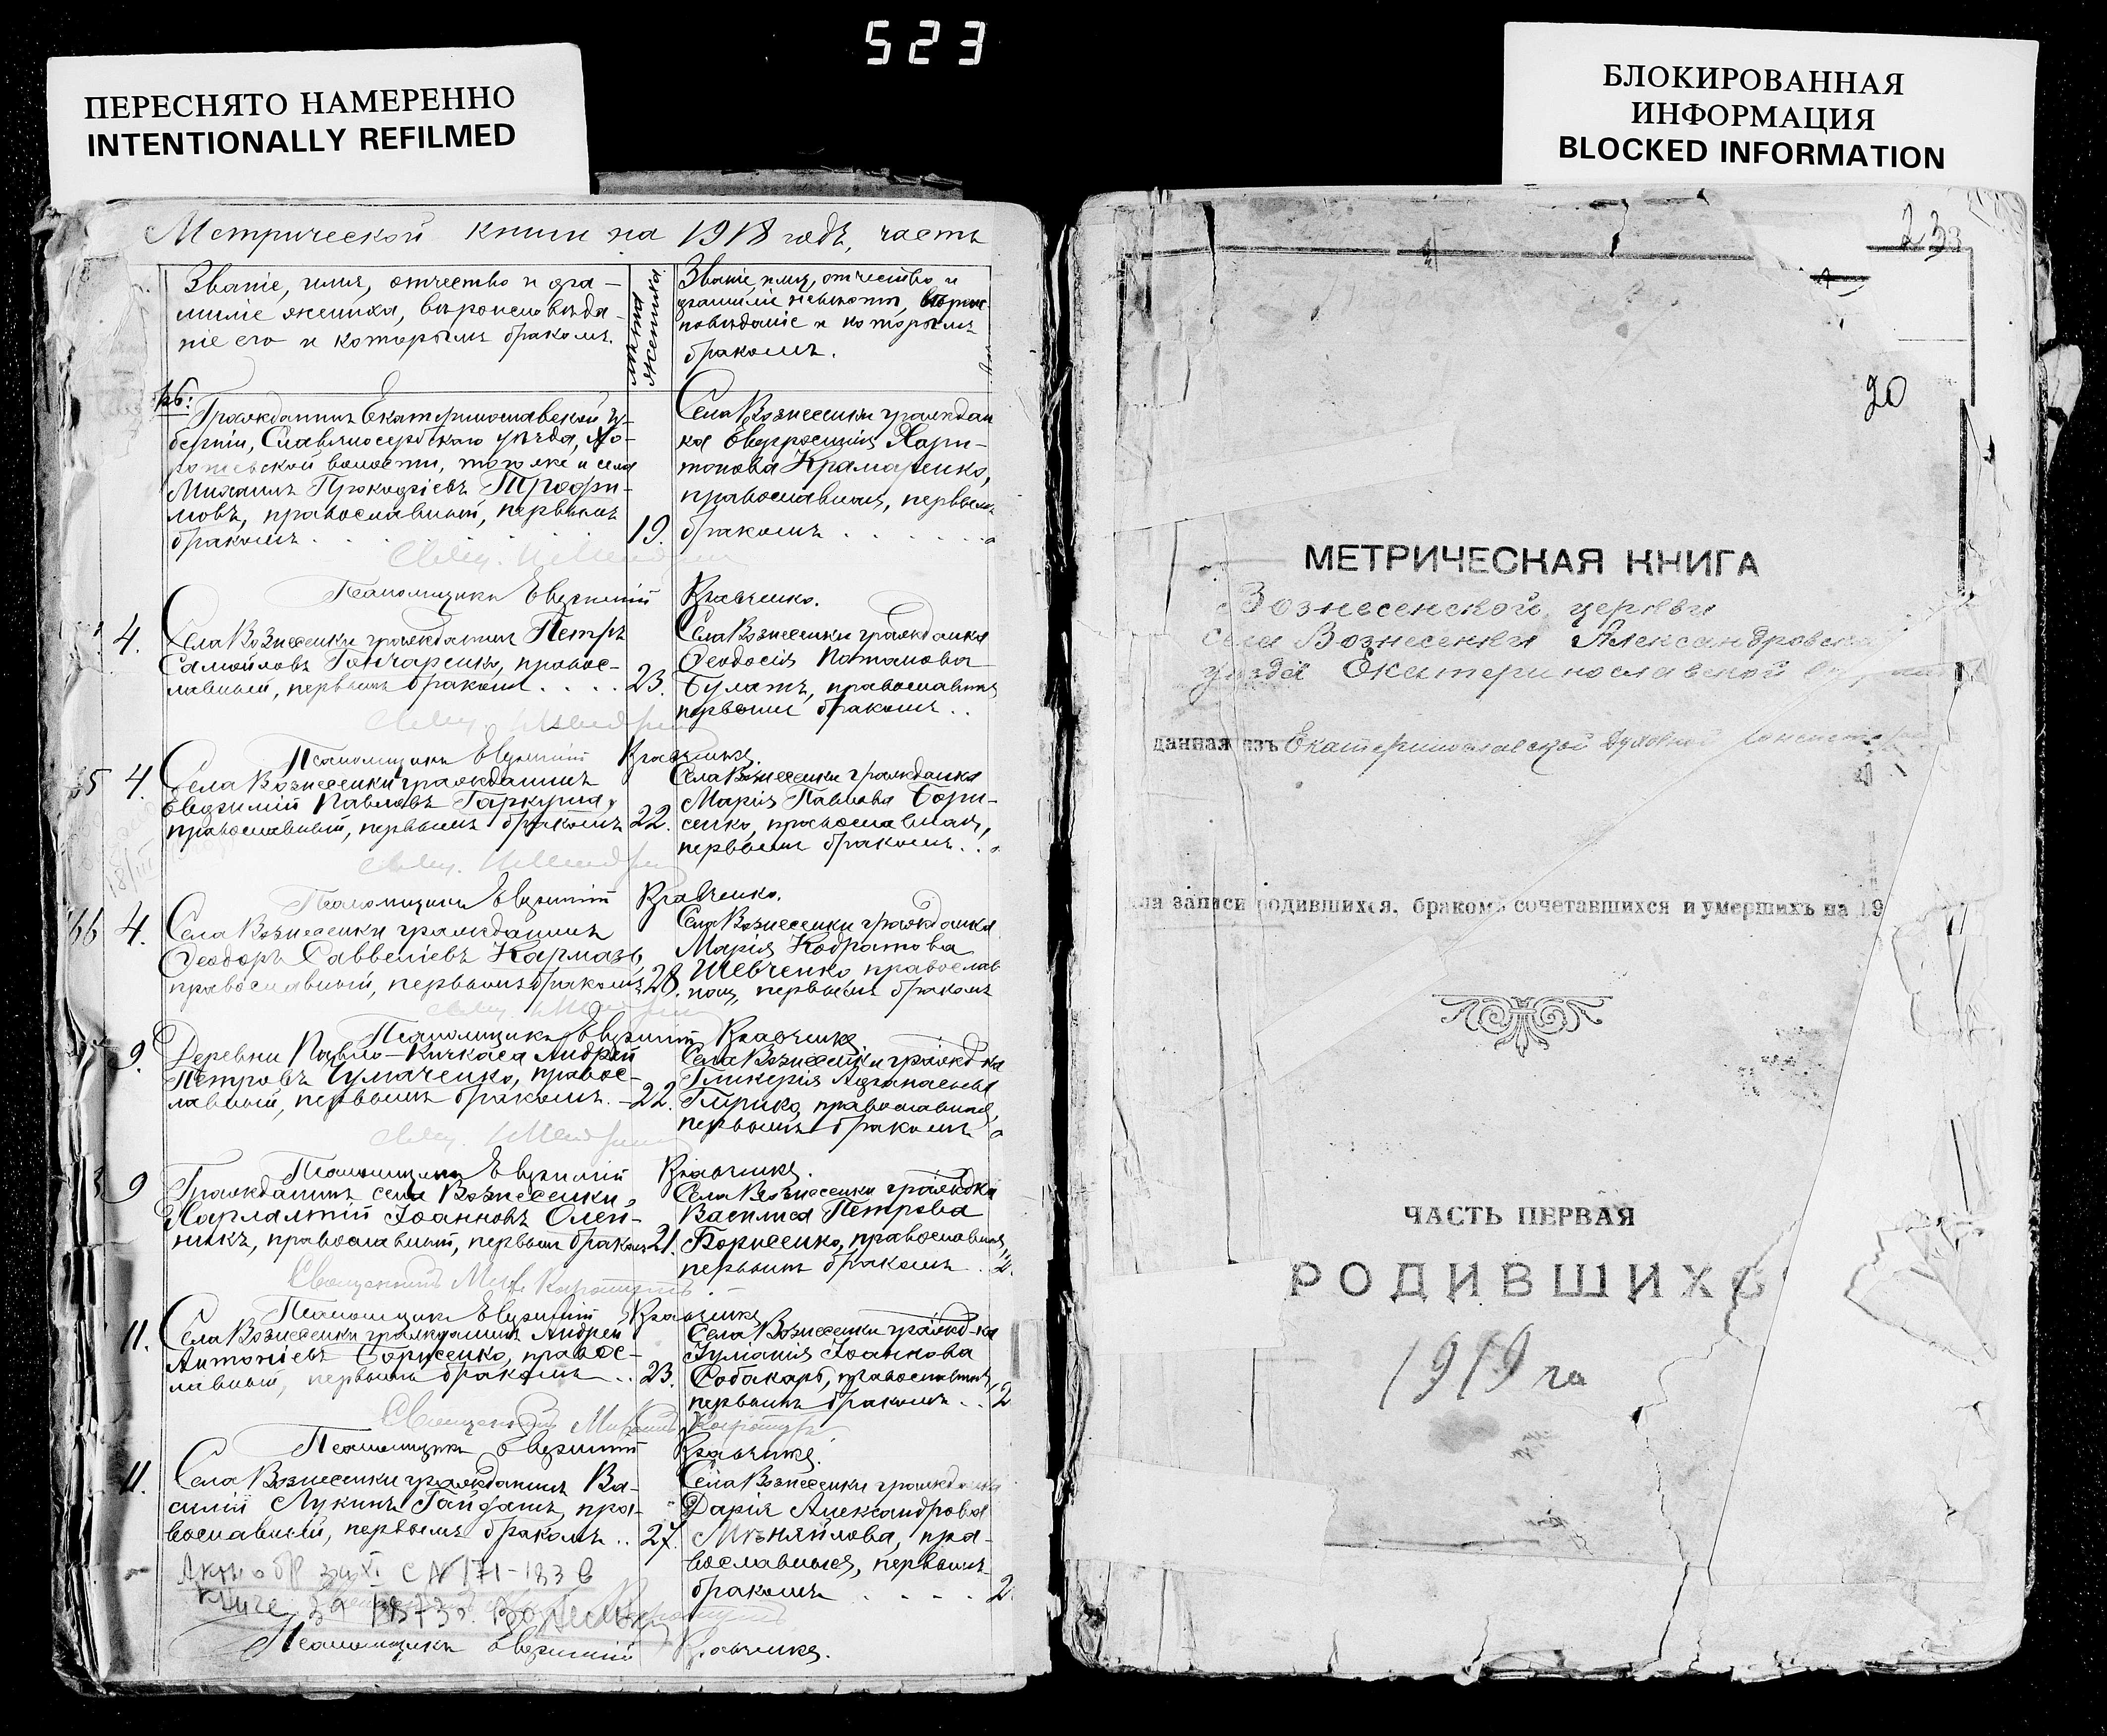 523
ПЕРЕСНЯТО НАМЕРЕННО
INTENTIONALLY REFILMED
БЛОКИРОВАННАЯ
ИНФОРМАЦИЯ
BLOCKED INFORMATION
Метрической книги на 1918 годъ, часть
Званіе, имя, отчество и фа-
миліе жениха, вѣроисповѣда-
ніе его и которымъ бракомъ.
лѣта жениха
Званіе, имя, отчество и
фамиліе невѣсты, вѣроис
повѣданіе и которымъ
бракомъ.
Гражданинъ Екатеринославской гу-
берніи, Славяносербскаго уѣзда,
волости, того же и села
Михаилъ Прокофіевъ Трофи-
мовъ, православный, первымъ
бракомъ
19.
Села Вознесенки граждан
ка Евфросинія Хари-
тонова Крамаренко,
православная, первымъ
бракомъ
Псаломщикъ Евфимій Кравченко.
4.
Села Вознесенки гражданинъ Петръ
Самойловъ Гончаренко, правос-
лавный, первымъ бракомъ
23.
Села Вознесенки гражданка
Ѳеодосія Потапова
Булатъ, православная
первымъ бракомъ
Псаломщикъ Евфимій Кравченко.
35 4.
Села Вознесенки гражданинъ
Евфимій Павловъ Гаркуша,
православный, первымъ бракомъ
22.
Села Вознесенки гражданка
Марія Павлова Бори-
сенко, православная,
первымъ бракомъ
Псаломщикъ Евфимій Кравченко.
66 4.
Села Вознесенки гражданинъ
Ѳеодоръ Савветіевъ Кармазь,
православный, первымъ бракомъ
28.
Села Вознесенки гражданка
Марія Кодратова
Шевченко православ
ная, первымъ бракомъ
Псаломщикъ Евфимій Кравченко
9.
Деревни Павло-Кичкаса Андрей
Петровъ Чумаченко, правос-
лавный, первымъ бракомъ
22.
Села Вознесенки гражд-ка
Гликерія Афанасьева
Гирико, православная,
первымъ бракомъ
Псаломщикъ Евфимій Кравченко.
9
Гражданинъ села Вознесенки,
Харлампій Іоанновъ Олей-
никъ, православный, первым бракомъ
21.
Села Вознесенки гражд-ка
Василиса Петрова
Борисенко, православная,
первымъ бракомъ
Священникъ
Псаломщикъ Евфимій Кравченко
11.
Села Вознесенки гражданинъ Андрей
Антоніевъ Борисенко, правос-
лавный, первымъ бракомъ
23.
Села Вознесенки гражд-ка
Іуліанія Іоаннова
Собакарь, православная,
первымъ бракомъ
2
Священникъ
Псаломщикъ Евфимій Кравченко.
11.
Села Вознесенки гражданинъ Ва-
силій Лукинъ Гайдашъ, пра-
вославный, первымъ бракомъ
27.
Села Вознесенки гражданка
Дарія Александрова
Мѣняйлова, пра-
вославная, первымъ
бракомъ
2.
с № 171-183 в
Псаломщикъ Евфимій Кравченко.
20
МЕТРИЧЕСКАЯ КНИГА
Вознесенской церкви
села Вознесенки Александровск
уѣзда Екатеринославской
данная изъ Екатеринославской Духовной
для записи родившихся, бракомъ сочетавшихся и умершихъ на 19
ЧАСТЬ ПЕРВАЯ
РОДИВШИХС
1919 га